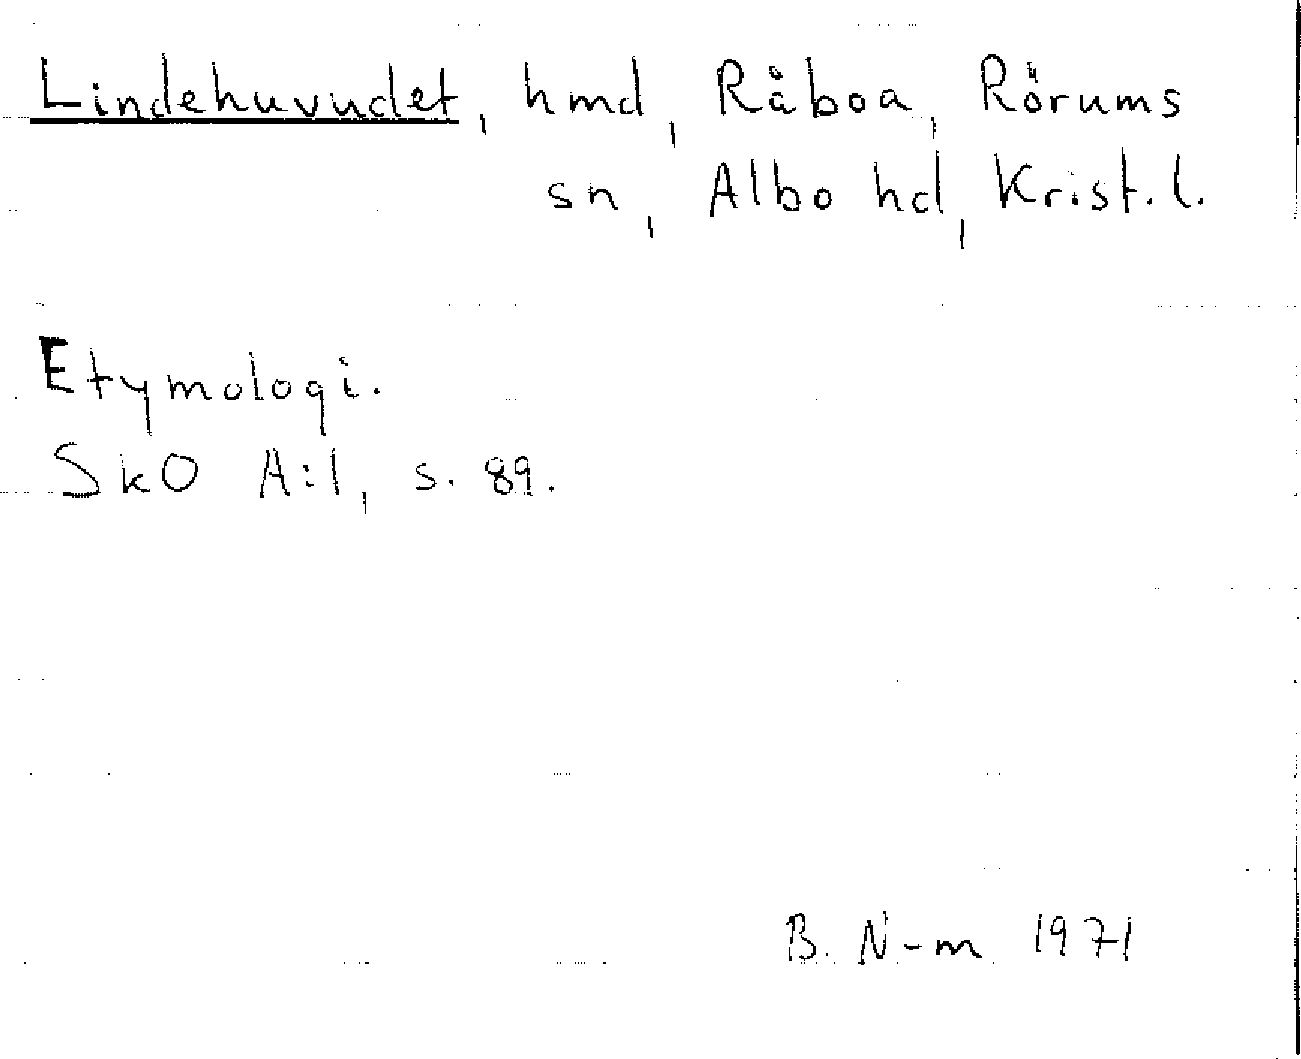 Lindehuvudet, hmd, Råboa, Rörums
sn, Albo hd, Krist. l.
Etymologi.
SkO A:1, s. 89.
B. N-m 1971